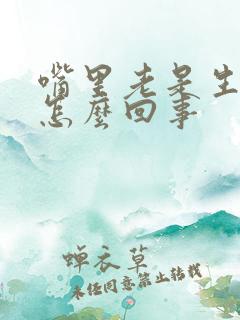 嘴里老是生
怎麽回事
蝉衣草
未经同意禁止转载